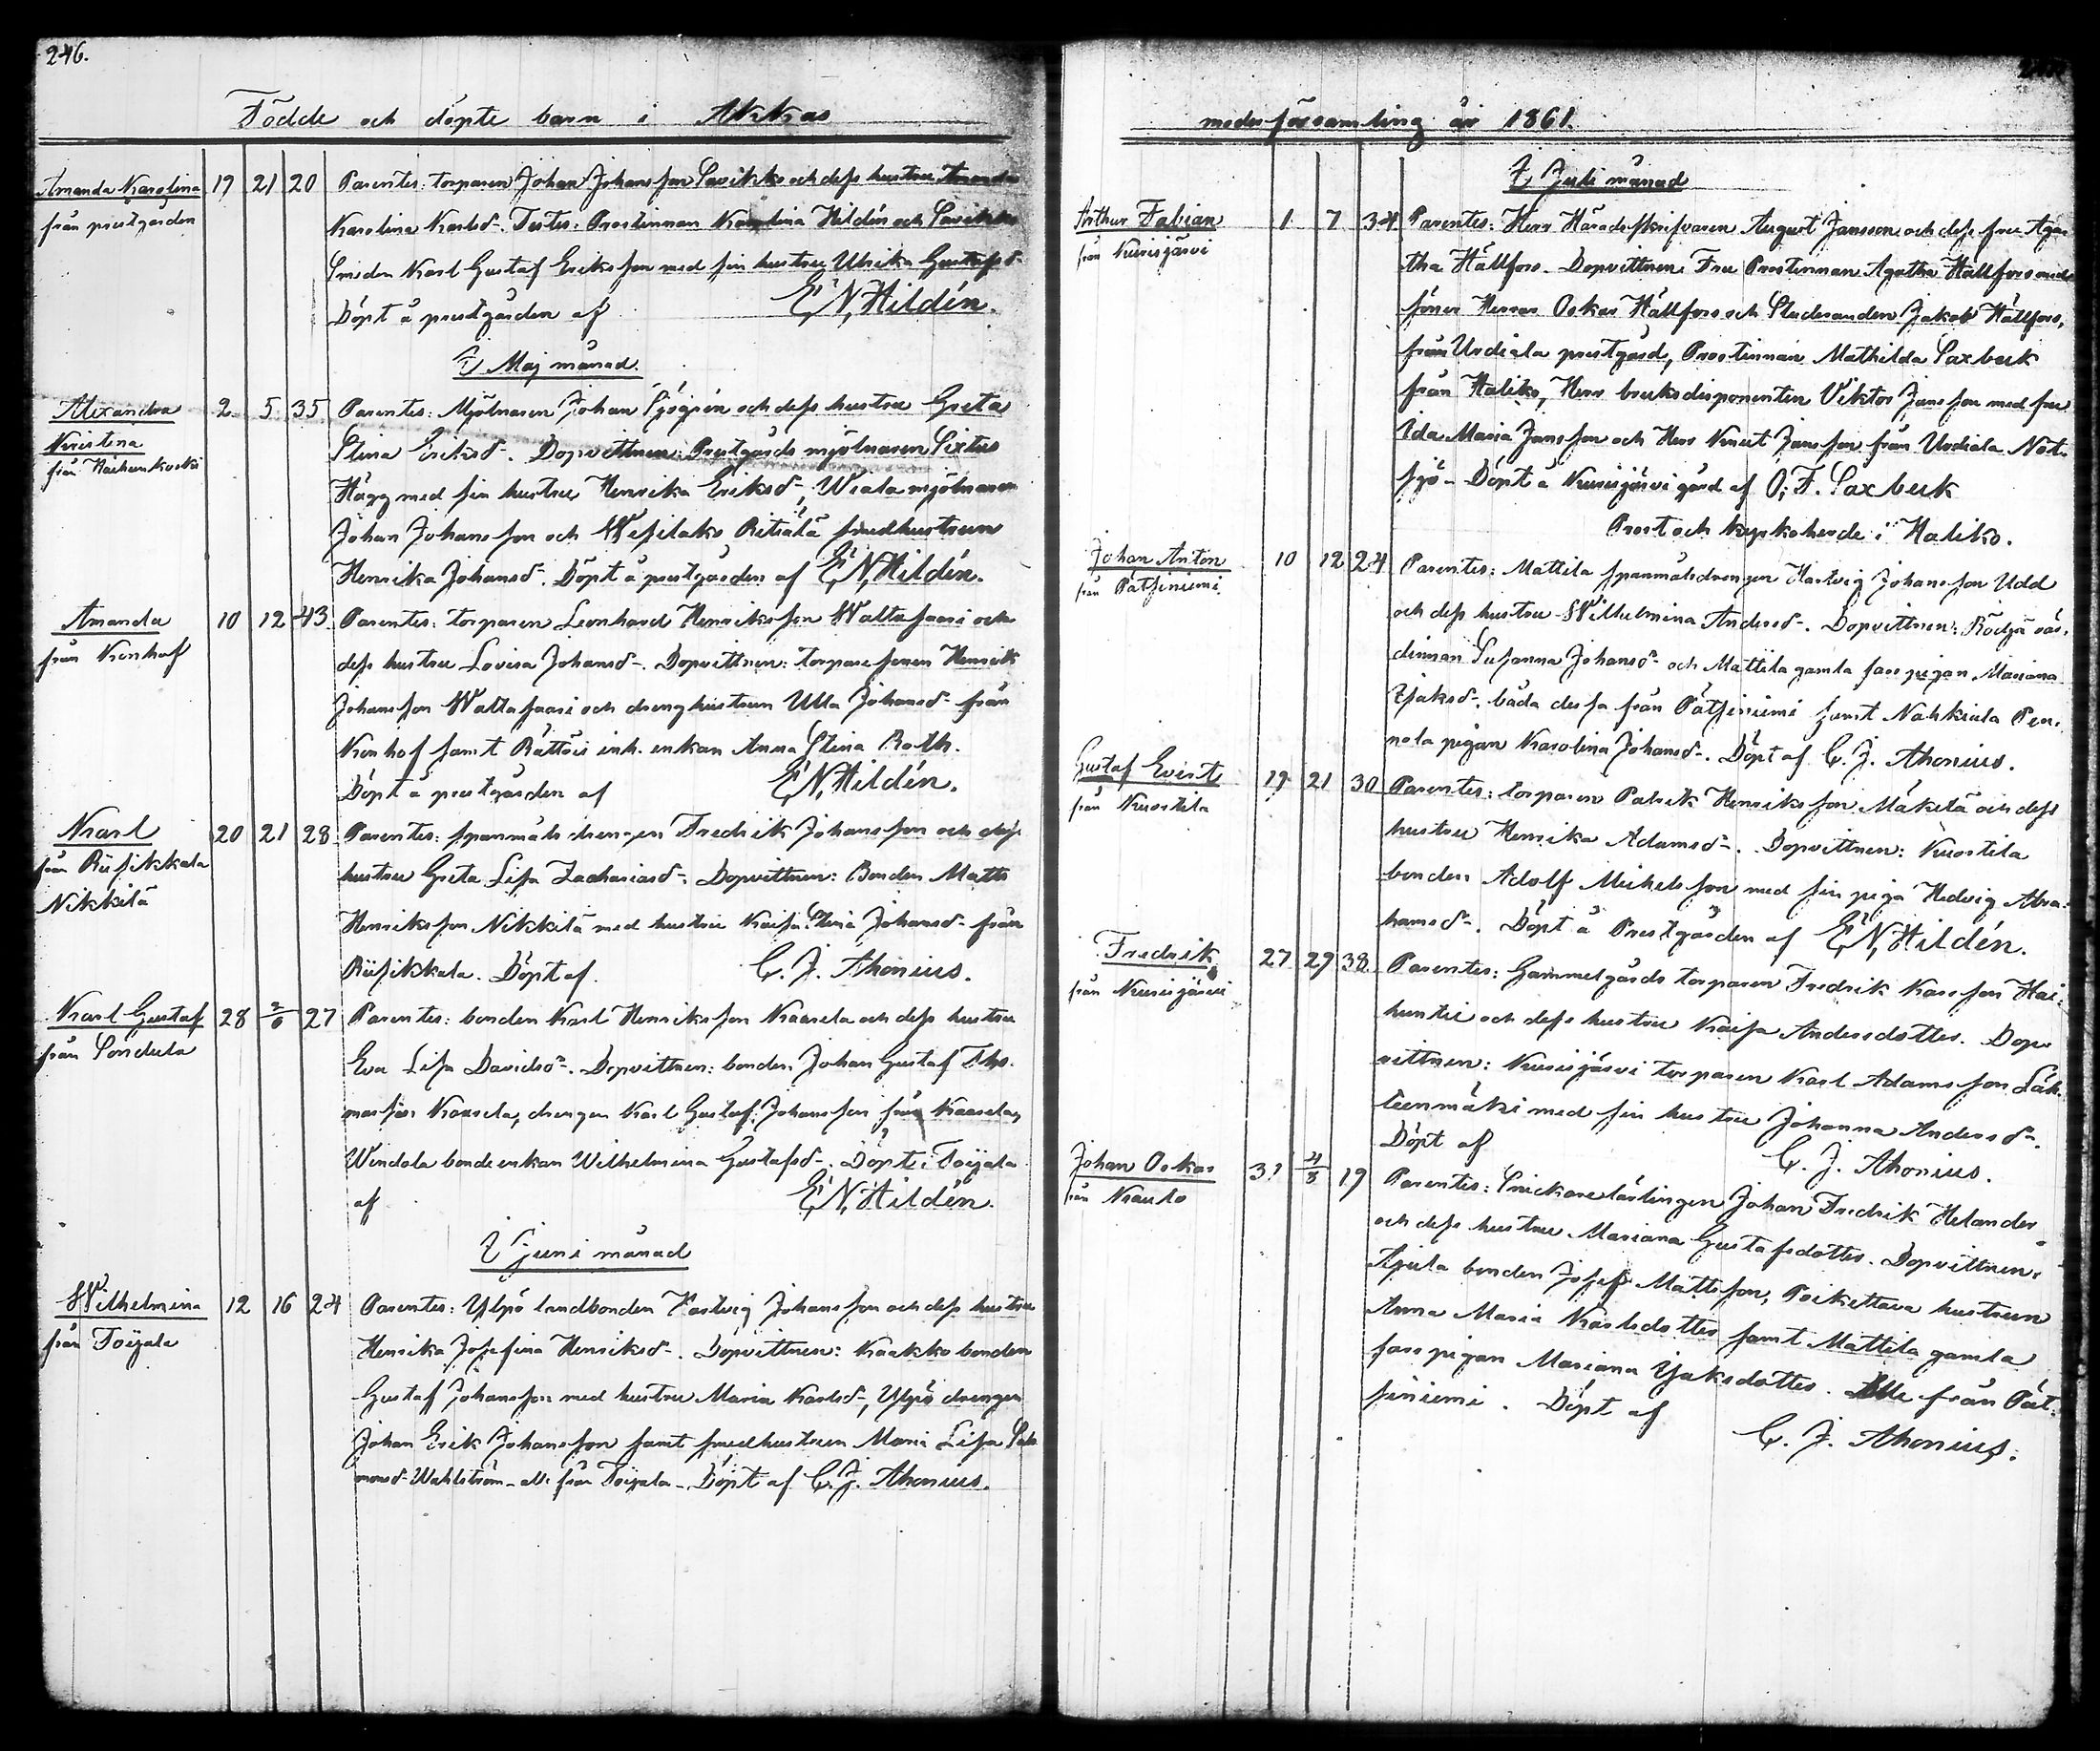 246.
Födde och döpte barn i Akkas
Amanda Karolina 19 21 20 Parentes: torparen Johan Johansson Savikko och dess hustru Amanda
från prestgården Karolina Karlsd-. Testes: Prostinnan Karolina Hildén och Savikko
Smeden Karl Gustaf Eriksson med sin hustru Ulrika Gustafsd-
Döpt å prestgården af E. N. Hildén.
I Maj månad.
Alexandra 2 5 35 Parentes: Mjölnaren Johan Sjögrén och dess hustru Greta
Kristina Stina Eriksd-. Dopvittnen: Prestgårds mjölnaren Sixtus
från Hägg med sin hustru Henrika Eriksd-, Wiala mjölnaren
Johan Johansson och Wesilaks Ritsälä smedhustrun
Henrika Johansd-. Döpt å prestgården af E. N. Hildén.
Amanda 10 12 43 Parentes: torparen Leonhard Henriksson Waltasaari och
från Kronhof dess hustru Lovisa Johansd-. Dopvittnen: torparesonen Henrik
Johansson Waltasaari och drenghustrun Ulla Johansd- från
Kronhof samt Rättöis inh. enkan Anna Stina Roth.
Döpt å prestgården af E. N. Hildén.
Karl 20 21 28 Parentes: spanmåls drengen Fredrik Johansson och dess
från Riisikkala hustru Greta Lisa Zachariasd-. Dopvittnen: Bonden Matts
Nikkilä Henriksson Nikkilä med hustru Kaisa Stina Johansd- från
Riisikkala. Döpt af C. J. Ahonius.
Karl Gustaf 28 2/6 27 Parentes: bonden Karl Henriksson Kaarela och dess hustru
från Sondula Eva Lisa Davidsd-. Dopvittnen: bonden Johan Gustaf Tho-
masson Kaarela, drengen Karl Gustaf Johansson från Kaarela,
Windola bondeenkan Wilhelmina Gustafsd-. Döpt i Toijala
af E. N. Hildén.
I Juni månad
Wilhelmina 12 16 24 Parentes: Ylpö landbonden Hartvig Johansson och dess hustru
från Toijala Henrika Josefina Henriksd-. Dopvittnen: Kaakko bonden
Gustaf Johansson med hustru Maria Karlsd-, Ylpö drengen
Johan Erik Johansson samt smedhustrun Maria Lisa Salo
monsd- Wahlström - alla från Toijala - Döpt af C. J. Ahonius.
moderförsamling år 1861.
I Juli månad
Arthur Fabian 1. 7 34 Parentes: Herr Häradsskrifvaren August Jansson och dess fru Aga-
från Kurisjärvi tha Hällfors. Dopvittnen: Fru Prostinnan Agatha Hällfors med
söner Herrar Oskar Hällfors och Studeranden Jakob Hällfors,
från Urdiala prestgård, Prostinnan Mathilda Saxbeck
från Haliko, Herr bruksdisponenten Viktor Jansson med fru
Ida Maria Jansson och Herr Knut Jansson från Urdiala Not-
sjö - Döpt å Kurisjärvi gård af O. F. Saxbeck
Prost och kyrkoherde i Haliko.
Johan Anton 10 12 24 Parentes: Mattila spanmålsdrengen Hartvig Johansson Udd
från Pätsiniemi. och dess hustru Wilhelmina Andersd-. Dopvittnen: Rödjä vär-
dinnan Susanna Johansd- och Mattila gamla fars pigan Mariana
Isaksd-, båda dessa från Pätsiniemi samt Nahkiala Pen-
nola pigan Karolina Johansd-. Döpt af C. J. Ahonius.
Gustaf Evert 19 21 30 Parentes: torparen Patrik Henriksson Mäkelä och dess
från Kurstila hustru Henrika Adamsd-. Dopvittnen: Kurstila
bonden Adolf Mickelsson med sin piga Hedvig Abra-
hamsd-. Döpt å Prestgården af E. N. Hildén.
Fredrik 27 29 38 Parentes: Gammelgårds torparen Fredrik Karsson Hai-
från Kurisjärvi huntie och dess hustru Kaisa Andersdotter. Dop-
vittnen: Kurisjärvi torparen Karl Adamsson Läh-
teenmäki med sin hustru Johanna Andersd-.
Döpt af C. J. Ahonius.
Johan Oskar 31 4/8 19 Parentes: Snickarelärlingen Johan Fredrik Helander
från Kauto och dess hustru Mariana Gustafsdotter. Dopvittnen:
bonden Josef Mattsson, hustrun
Anna Maria Karlsdotter samt Mattila gamla
fars pigan Mariana Isaksdotter. Alle från Pät-
siniemi. Döpt af C. J. Ahonius.